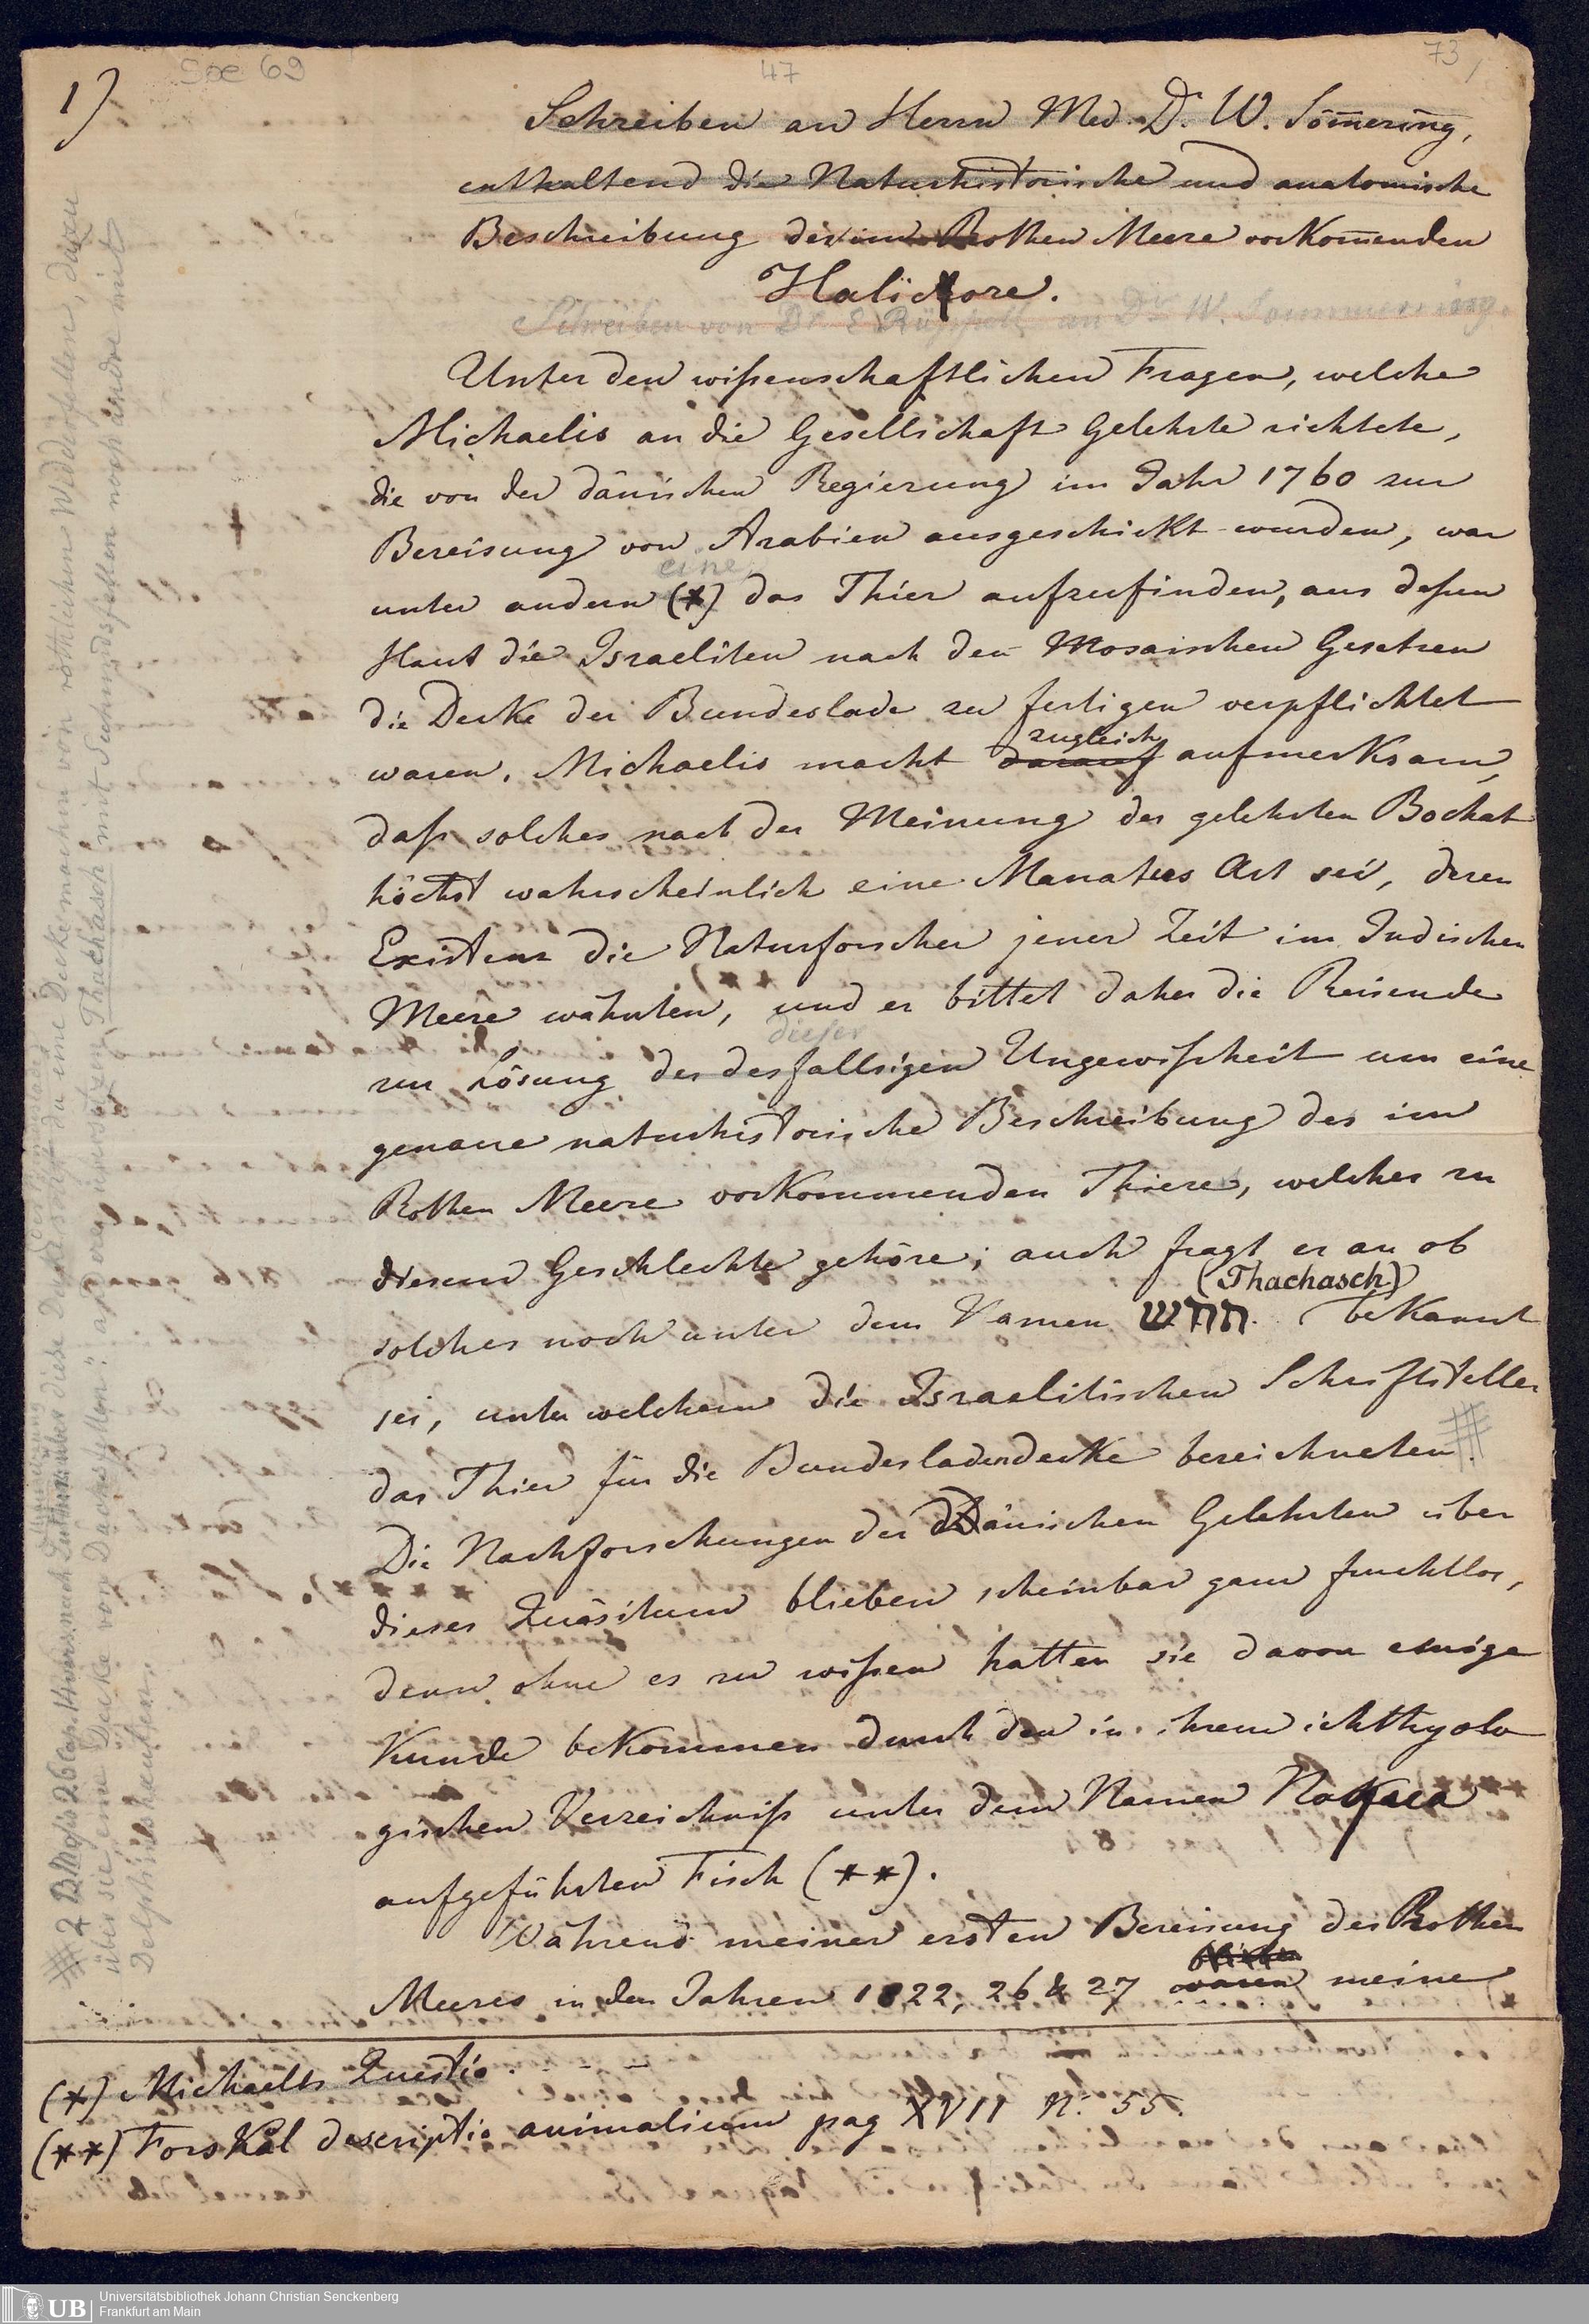 Soe 69
47
73
1)
Schreiben an Herrn Med. Dr. W. Sömering,
enthaltend die Naturhistorische und anatomische
Beschreibung der im Rothen Meere vorkomenden
Halicore.
Schreiben von Dr. E Rüppell an Dr W. Soemmerring.
Unter den wißenschaftlichen Fragen, welche
Michaelis an die Gesellschaft Gelehrte richtete,
die von der dänischen Regierung im Jahr 1760 zur
Bereisung von Arabien ausgeschickt wurden, war
eine
unter andern (*) das Thier aufzufinden, aus deßen
Haut die Israeliten nach den Mosaischen Gesetzen
die Decke der Bundeslade zu fertigen verpflichtet
zugleich
waren. Michaelis macht darauf aufmerksam,
daß solches nach der Meinung des gelehrten Bochat
höchst wahrscheinlich eine Manatus Art sei, deren
Existenz die Naturforscher jener Zeit im Indischen
Meere wähnten, und er bittet daher die Reisende
dieser
zur Lösung der desfallsigen Ungewißheit um eine
genaue naturhistorische Beschreibung des im
Rothen Meere vorkommenden Thiere, welches zu
diesem Geschlechte gehöre; auch fragt er an ob
(Thachasch)
solches noch unter dem Namen תחש bekannt
sei, unter welchem die Israelitischen Schriftsteller
das Thier für die Bundesladendecke bezeichneten.
Die Nachforschungen der Dänischen Gelehrten über
dieses Quäsitum blieben scheinbar ganz fruchtlos,
denn ohne es zu wißen hatten sie davon einige
Kunde bekommen durch den in ihrem ichthyolo
gischen Verzeichniß unter dem Namen
aufgeführten Fisch (**).
Während meiner ersten Bereisung des Rothen
Meeres in den Jahren 1822, 26 & 27 waren meine
(*) Michaelis Questio
(**) Forskål descriptio animalium pag XVII N. 55.
2 B. Moses 26 Cap. 14 Vers. nach Luthers
über diese Decke sollst du eine Decke machen von röthlichen Widderfellen, dazu
über sie eine Decke von Dachsfellen"; übersetzen Thachasch mit Seehundsfellen noch andre mit
Delphinshäuten.
Universitätsbibliothek Johann Christian Senckenberg
UB Frankfurt am Main